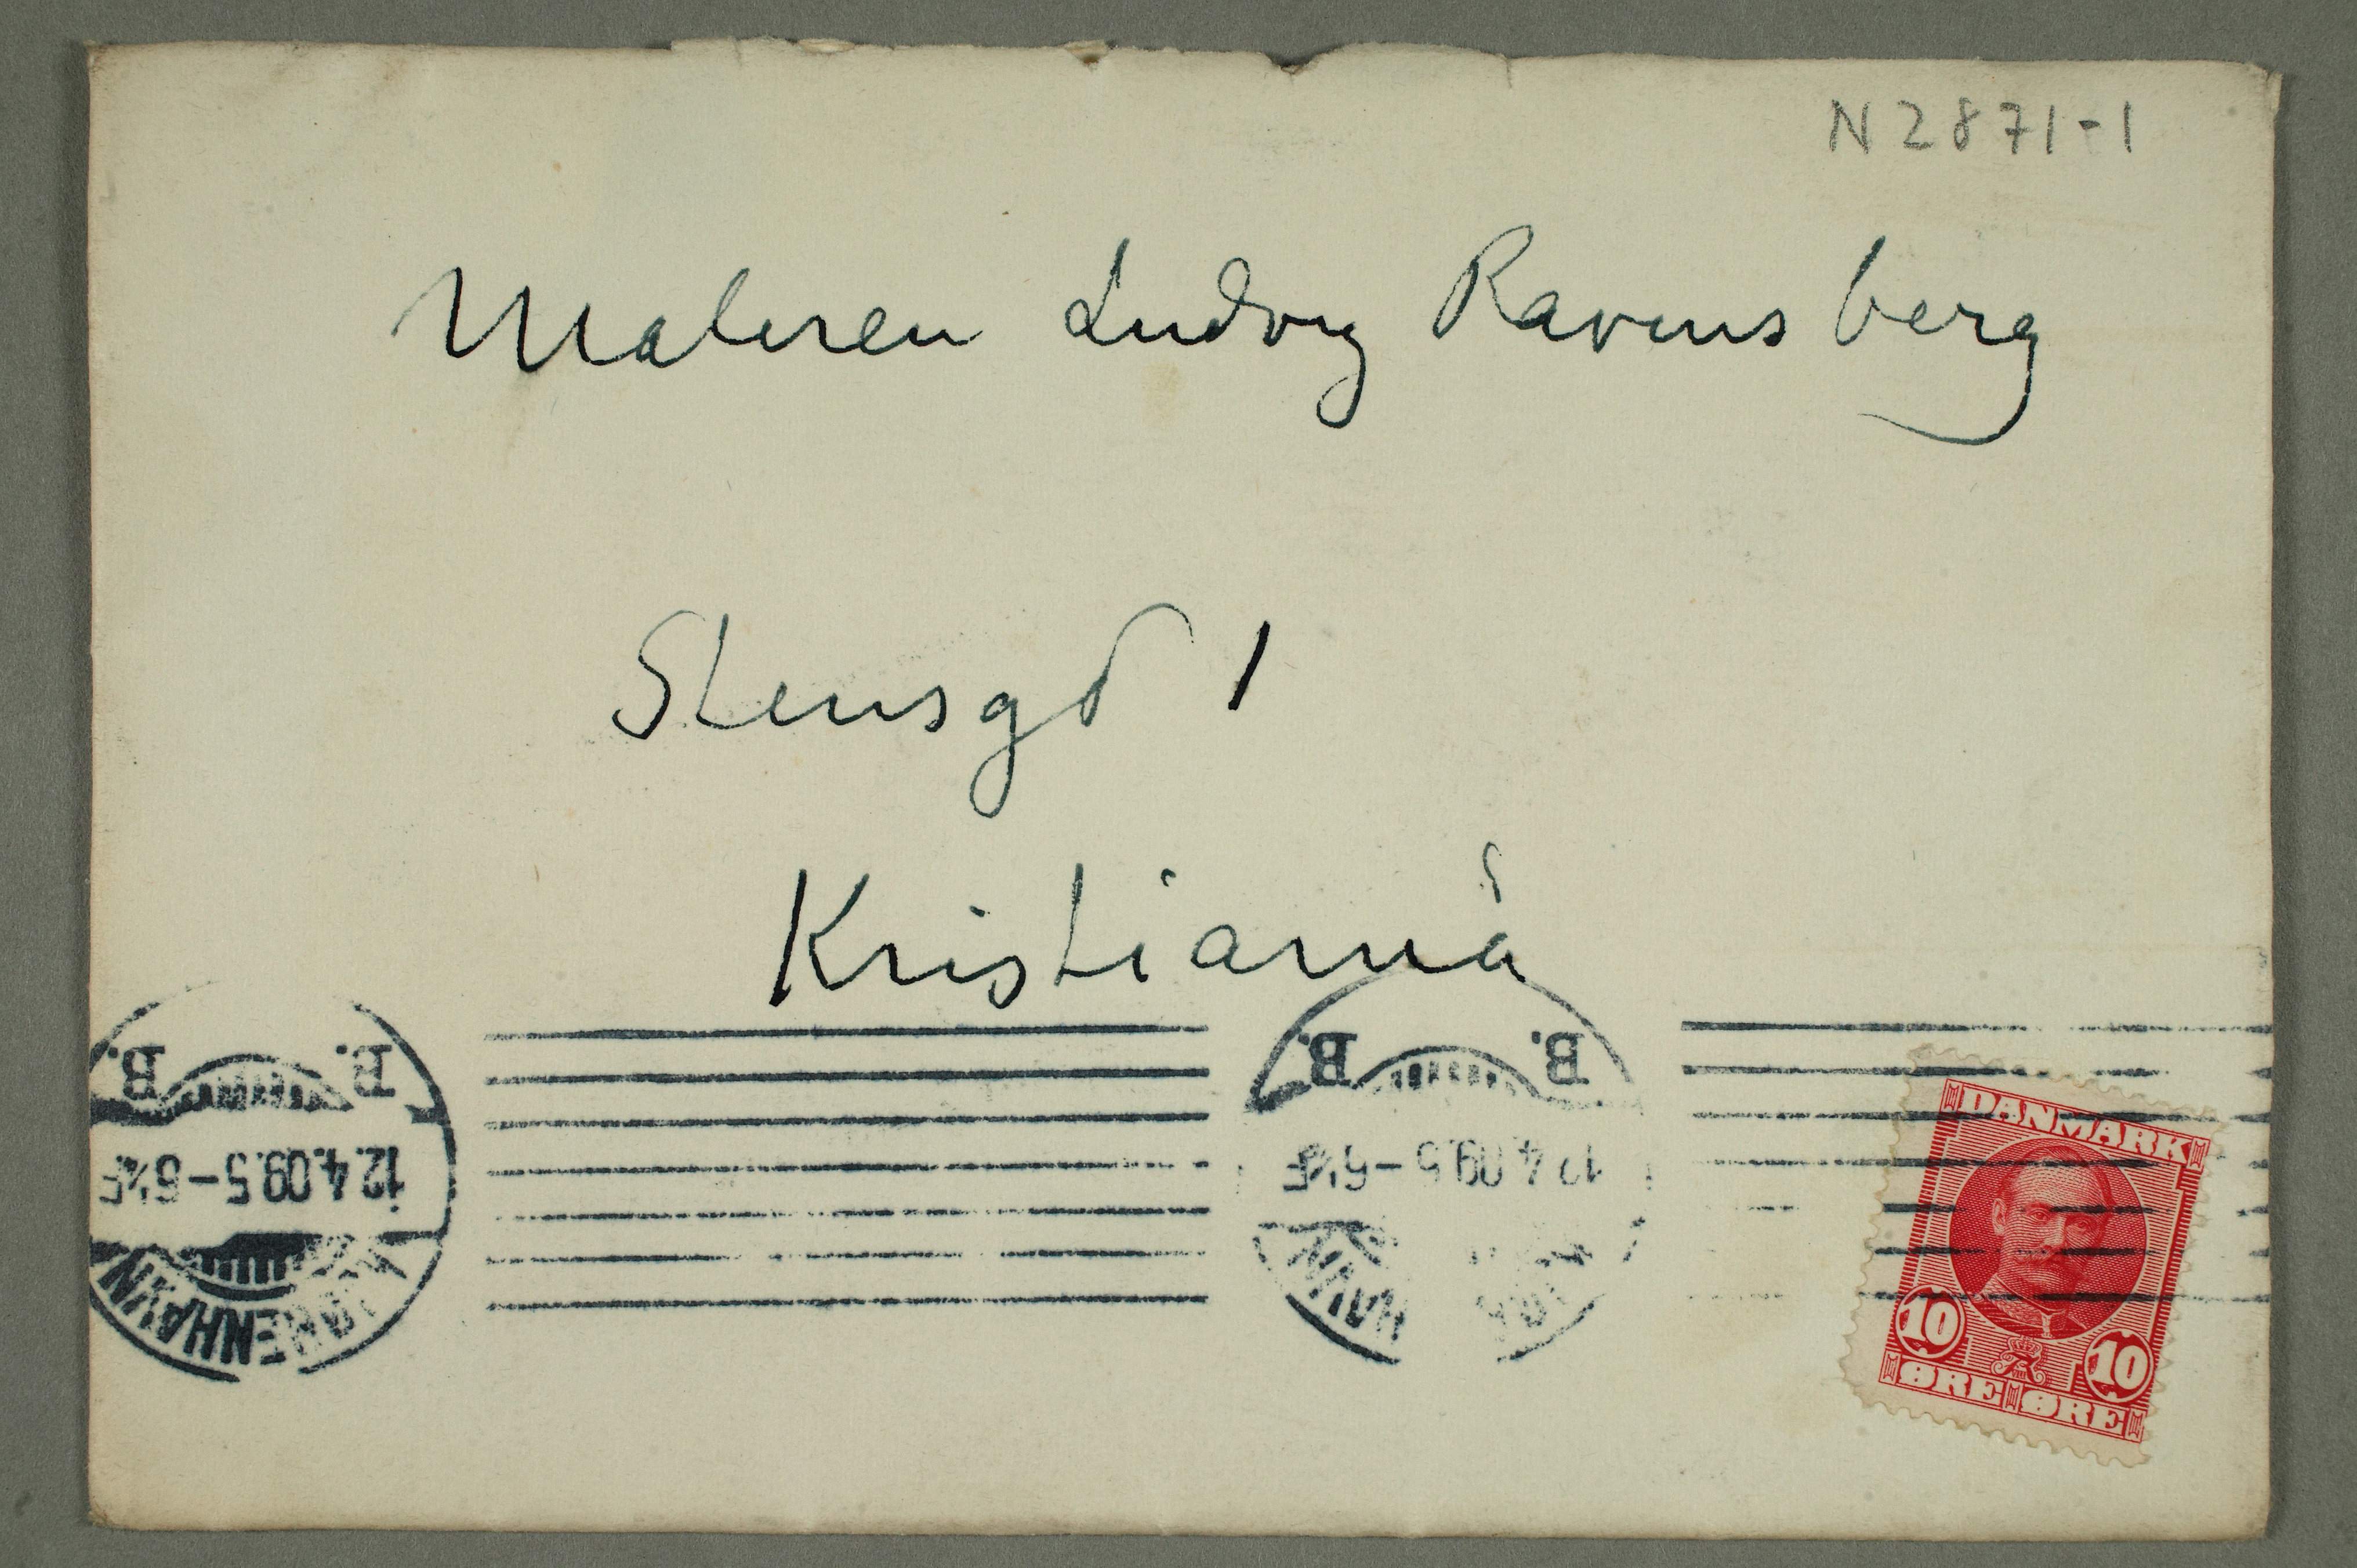 N 2871-1
Maleren Ludvig Ravensberg
Stensgd 1
Kristiania
B. B.
12.4.09.5-6½F
KJØBENHAVN
B. B.
12.4.09.5-6½F
DANMARK
10 10
ØRE ØRE